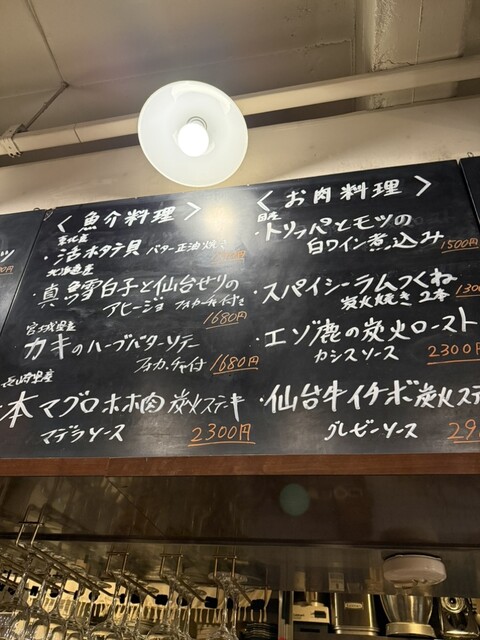 〈魚介料理〉
・活ホタテ貝 バター正油焼き
北海道産
・真鱈白子と仙台せりの
アヒージョ フォカッチャ付き
1680円
宮城県産
カキのハーブバターソテー
フォカッチャ付 1680円
本マグロホホ肉炭火ステーキ
マデラソース 2300円
〈お肉料理〉
国産
・トリッパとモツの
白ワイン煮込み 1500円
・スパイシーラムつくね
炭火焼き2本
・エゾ鹿の炭火ロースト
カシスソース 2300円
・仙台牛イチボ炭火ステ
グレービーソース